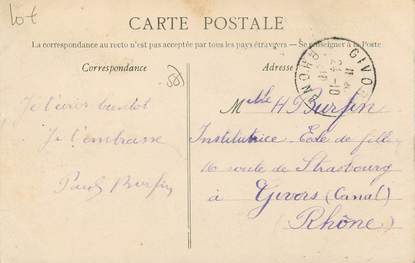 lot
CARTE POSTALE
La correspondance au recto n'est pas acceptée par tous les pays étrangers — Se renseigner à la Poste
Correspondance
Adresse
GIVORS
RHONE
Je t'écris bientot
Je t'embrasse
Paul Burfin
Mlle H Burfin
Institutrice École de filles
16 route de Strasbourg
à Givors (Canal)
(Rhône)